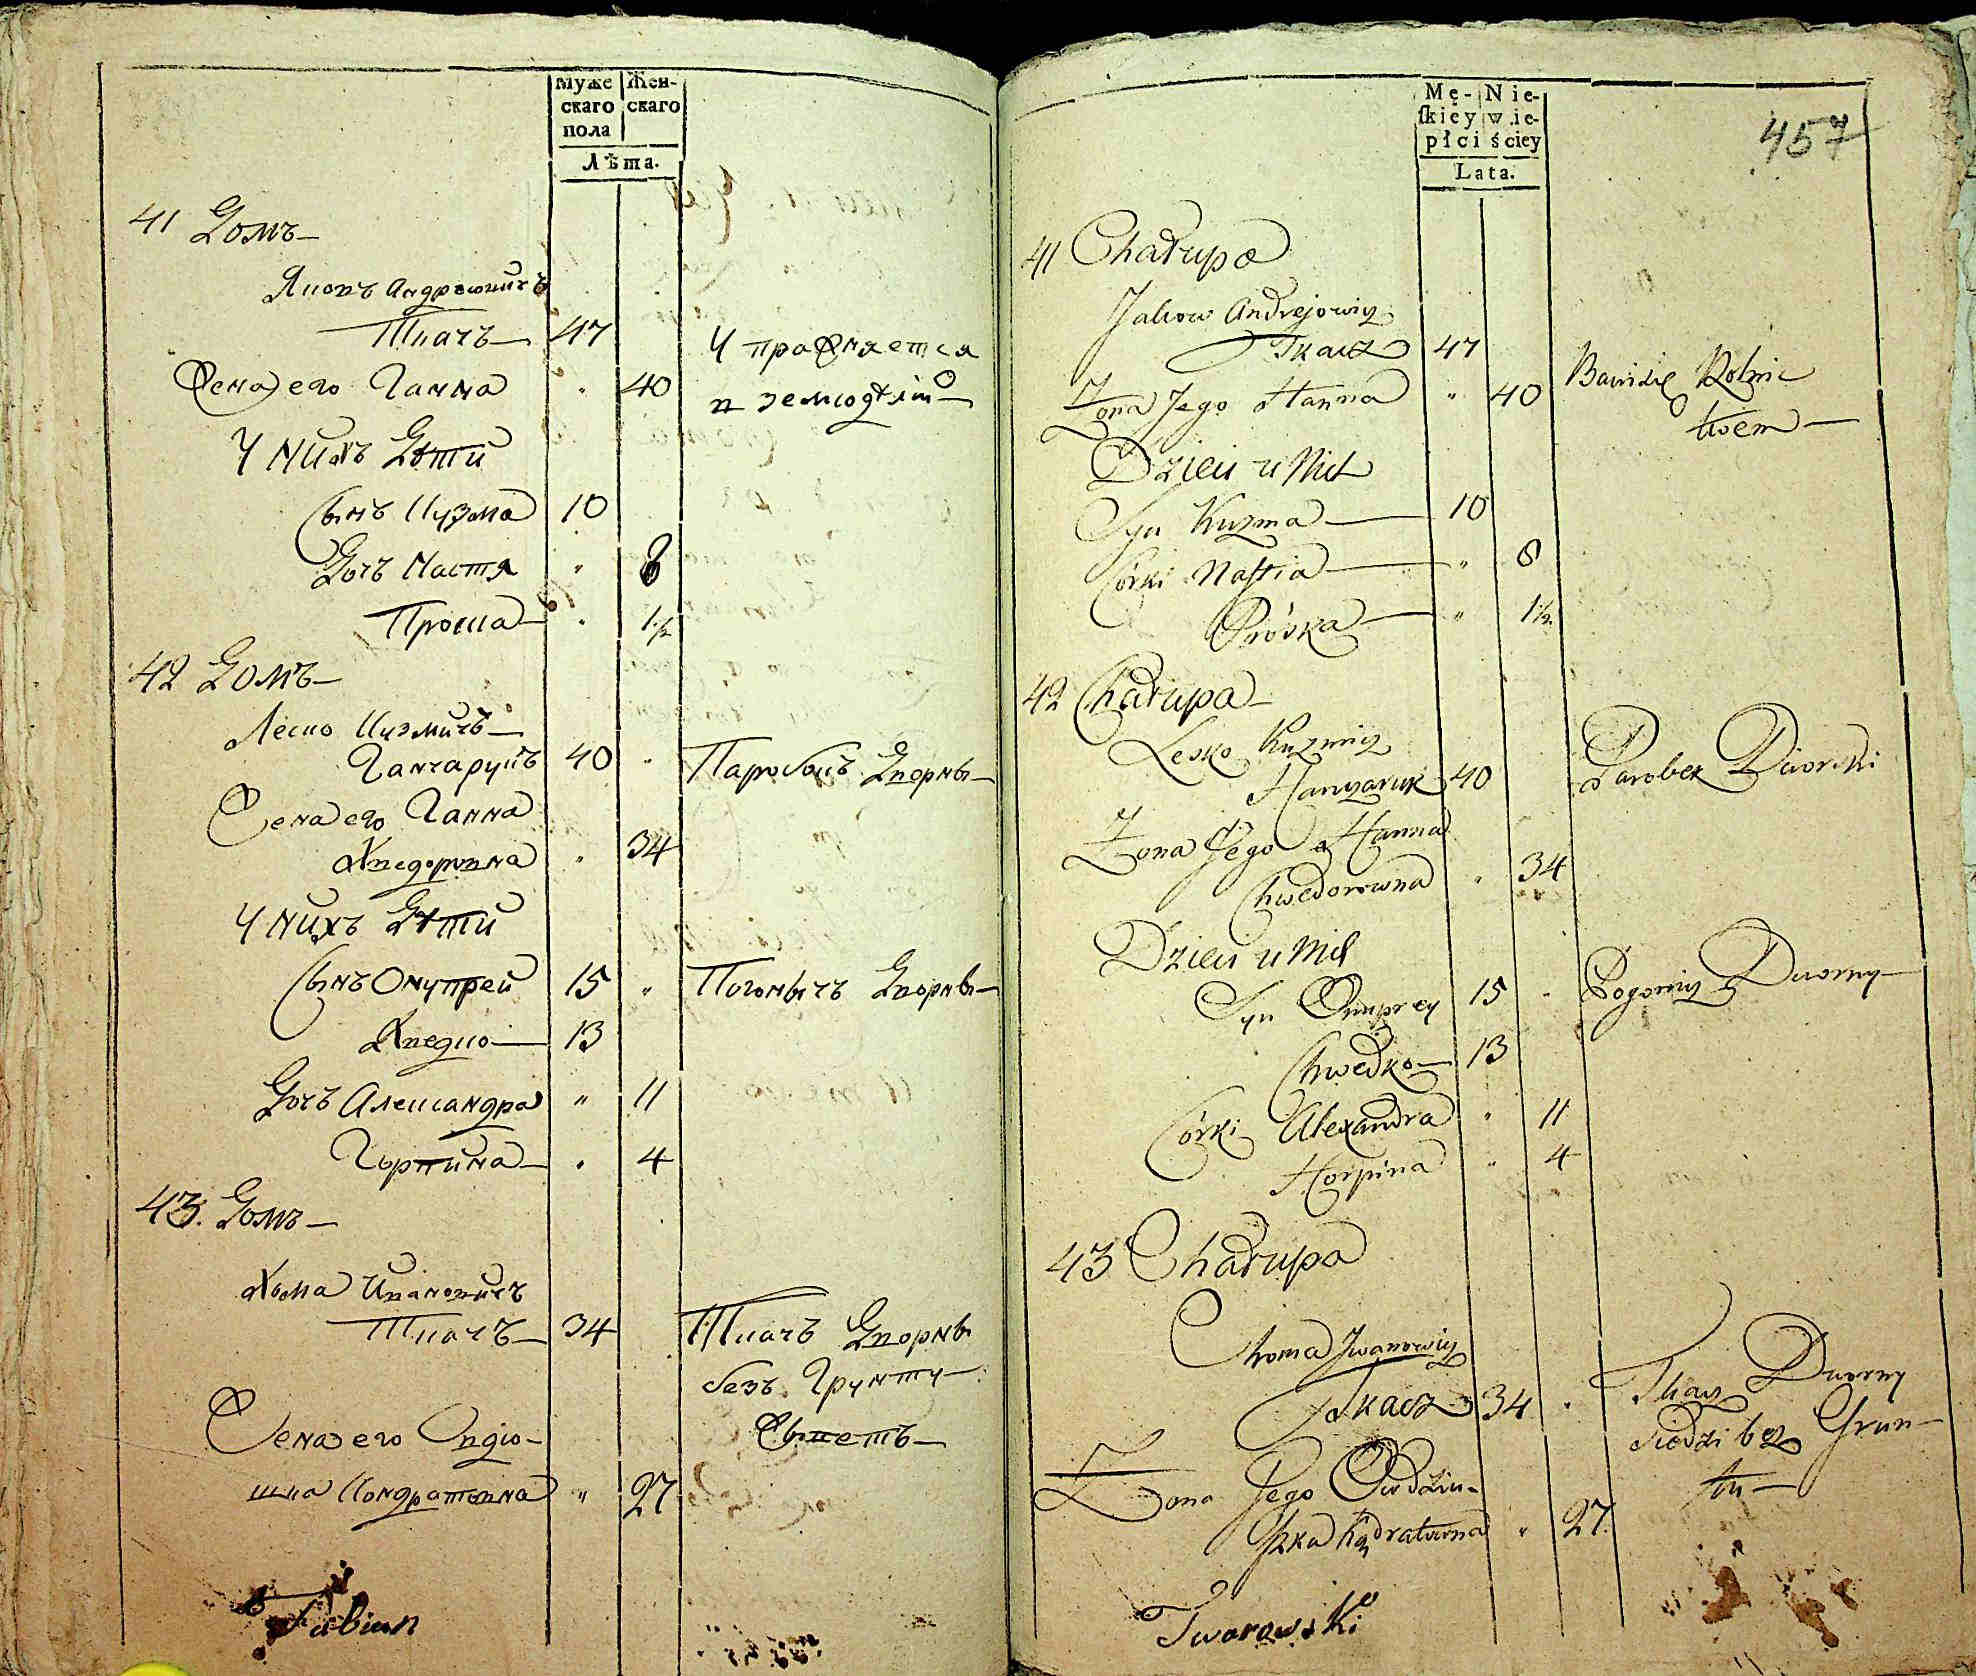 Муже Жен-
скаго скаго
пола
Лѣта.
41 Домъ
Яковъ Андрѣевичъ
Ткачъ 47
Упражняется
Жена его Ганна " 40
в земледѣлій
У нихъ Дѣти
Сынъ Кузма 10
Дочъ Настя " 8
Проска " 1 1/2
42 Домъ
Леско Кузмичъ
Ганчарукъ 40 " Паробокъ Дворны
Жена его Ганна
Хведоровна " 34
У нихъ Дѣти
Сынъ Онупрей 15 " Погонычъ Дворны
Хведко 13
Дочъ Александра " 11
Горпина " 4
43. Домъ
Хома Ивановичъ
Ткачъ 34 Ткачъ Дворны
безъ Грунту
Жена его Овдю-
Жыветъ
шка Кондратовна " 27
Fabian
Mę- Nie-
skiey wie-
płci ściey
Lata.
457
41 Chałupa
Jakow Andrejowicz
Tkacz 47
Bawi się Rolnic
Zona Jego Hanna " 40
twem
Dzieci u Nich
Syn Kuzma 10
Córki Nastia " 8
Próska " 1 1/2
42 Chałupa
Lesko Kuzmicz
Hanczaruk 40 Parobek Dworski
Zona Jego Hanna
Chwedorowna " 34
Dzieci u Nich
Syn Onuprey 15 " Pogonicz Dworny
Chwedko 13
Córki Alexandra " 11
Horpina " 4
43 Chałupa
Choma Iwanowicz
Tkacz 34 " Tkacz Dworny
siedzi bez Grun-
Zona Jego Owdziu-
tu
szka Kądratowna " 27
Tworowski